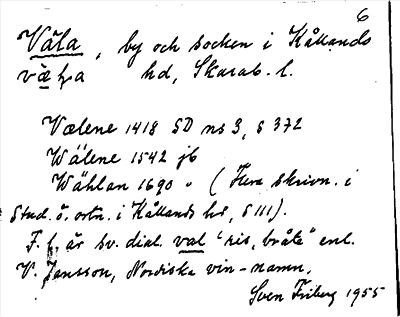 6
Väla, by och socken i Kållands
hd, Skarab. l.
Vælene 1418 SD ns 3, s 372
Wälene 1542 jb
Wählan 1690 " (Flera skrivn. i
Stud. ö. ortn. i Kållands hd, s 111).
F. l. är sv. dial. val "ris, bråte" enl.
V. Jansson, Nordiska vin-namn.
Sven Friberg 1955